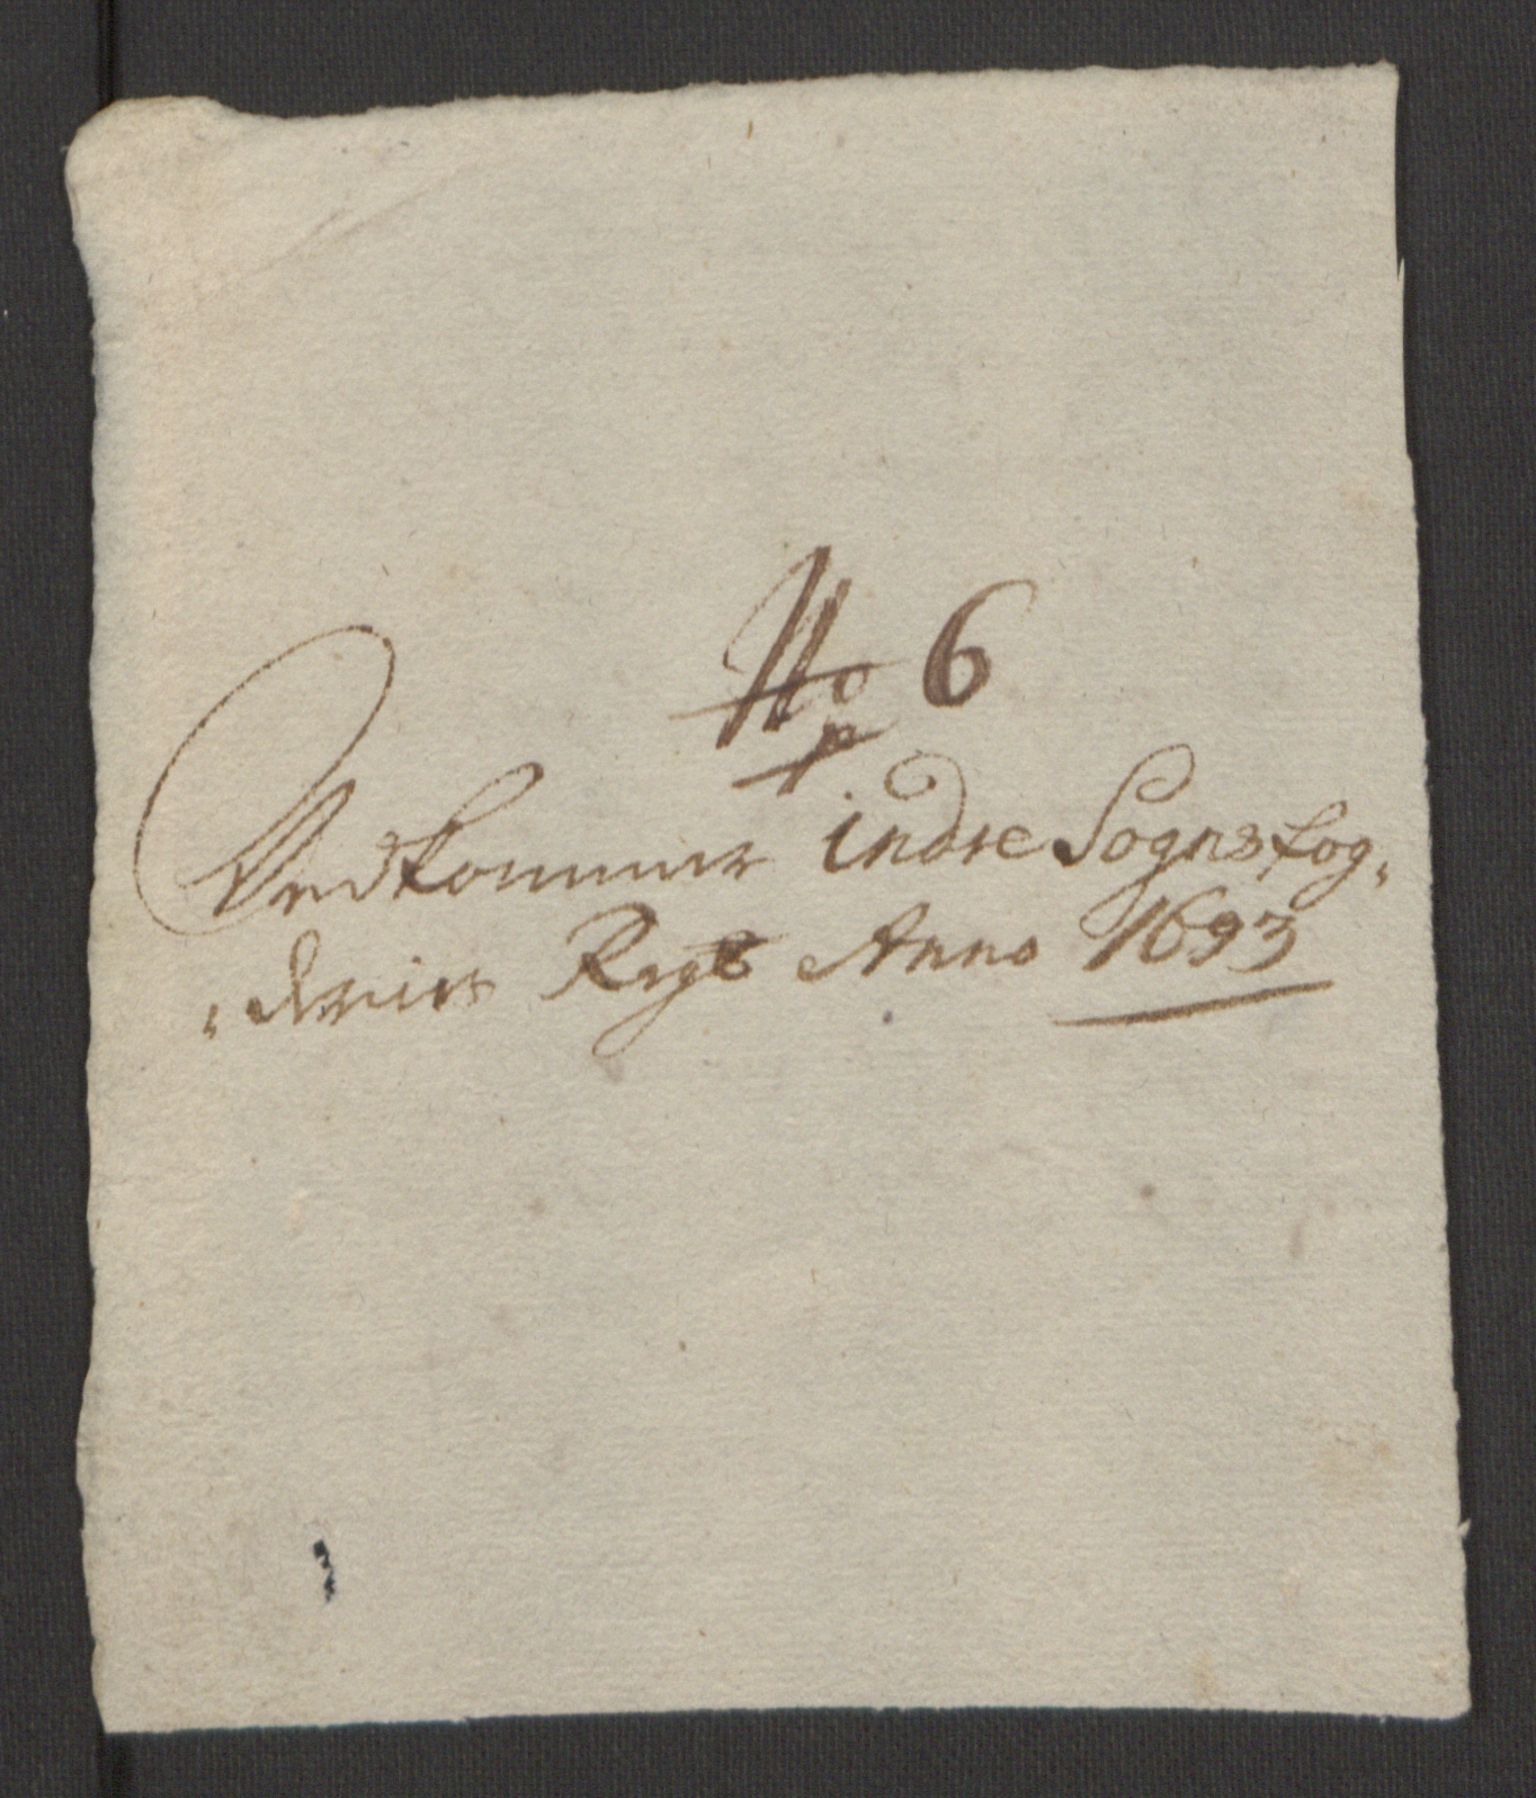 No 6
Vedkommer indre Sogns fog,
,deries Regb Anno 1693